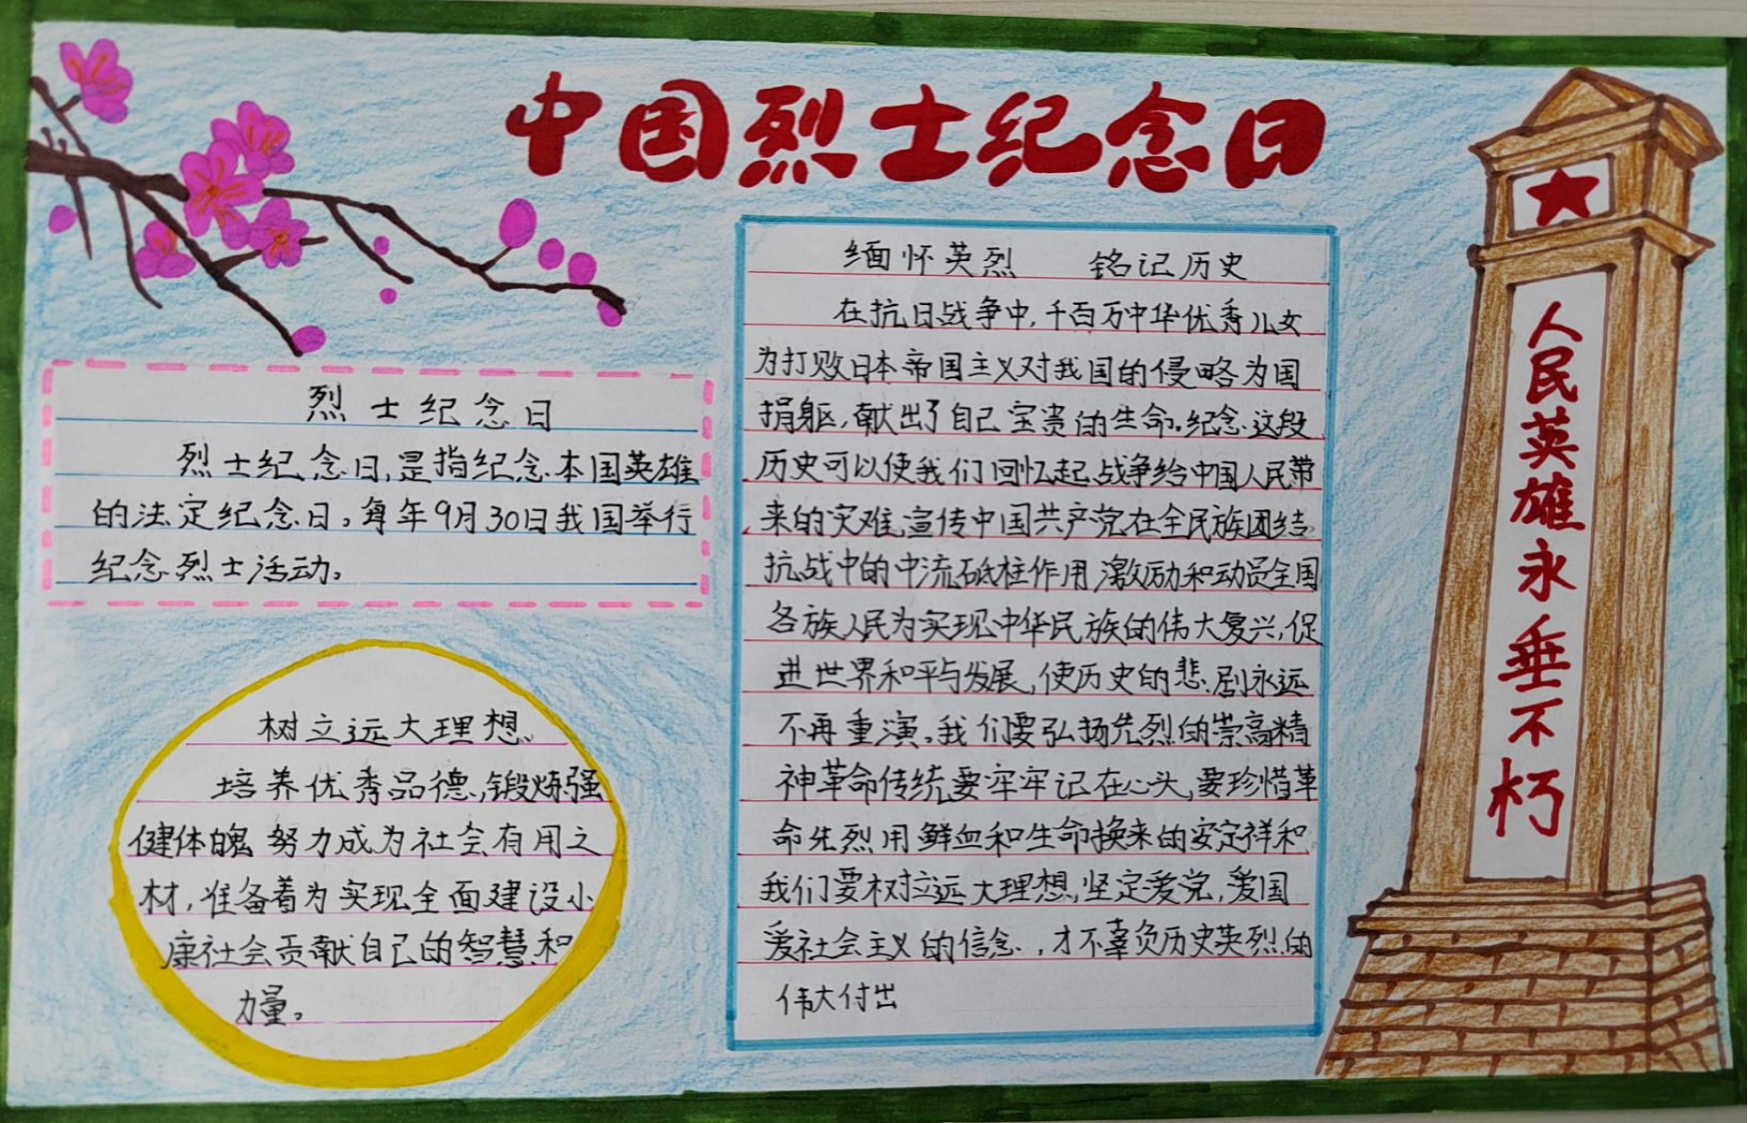 中国烈士纪念日
烈士纪念日
烈士纪念日,是指纪念本国英雄
的法定纪念日。每年9月30日我国举行
纪念烈士活动。
树立远大理想
培养优秀品德,锻炼强
健体魄 努力成为社会有用之
材,准备着为实现全面建设小
康社会贡献自己的智慧和
力量。
缅怀英烈 铭记历史
在抗日战争中,千百万中华优秀儿女
为打败日本帝国主义对我国的侵略为国
捐躯,献出了自己宝贵的生命。纪念这段
历史可以使我们回忆起战争给中国人民带
来的灾难,宣传中国共产党在全民族团结
抗战中的中流砥柱作用,激励和动员全国
各族人民为实现中华民族的伟大复兴,促
进世界和平与发展,使历史的悲剧永远
不再重演。我们要弘扬先烈的崇高精
神革命传统,要牢牢记在心头,要珍惜革
命先烈用鲜血和生命换来的安定祥和
我们要树立远大理想,坚定爱党,爱国
爱社会主义的信念,才不辜负历史英烈的
伟大付出
人民英雄永垂不朽